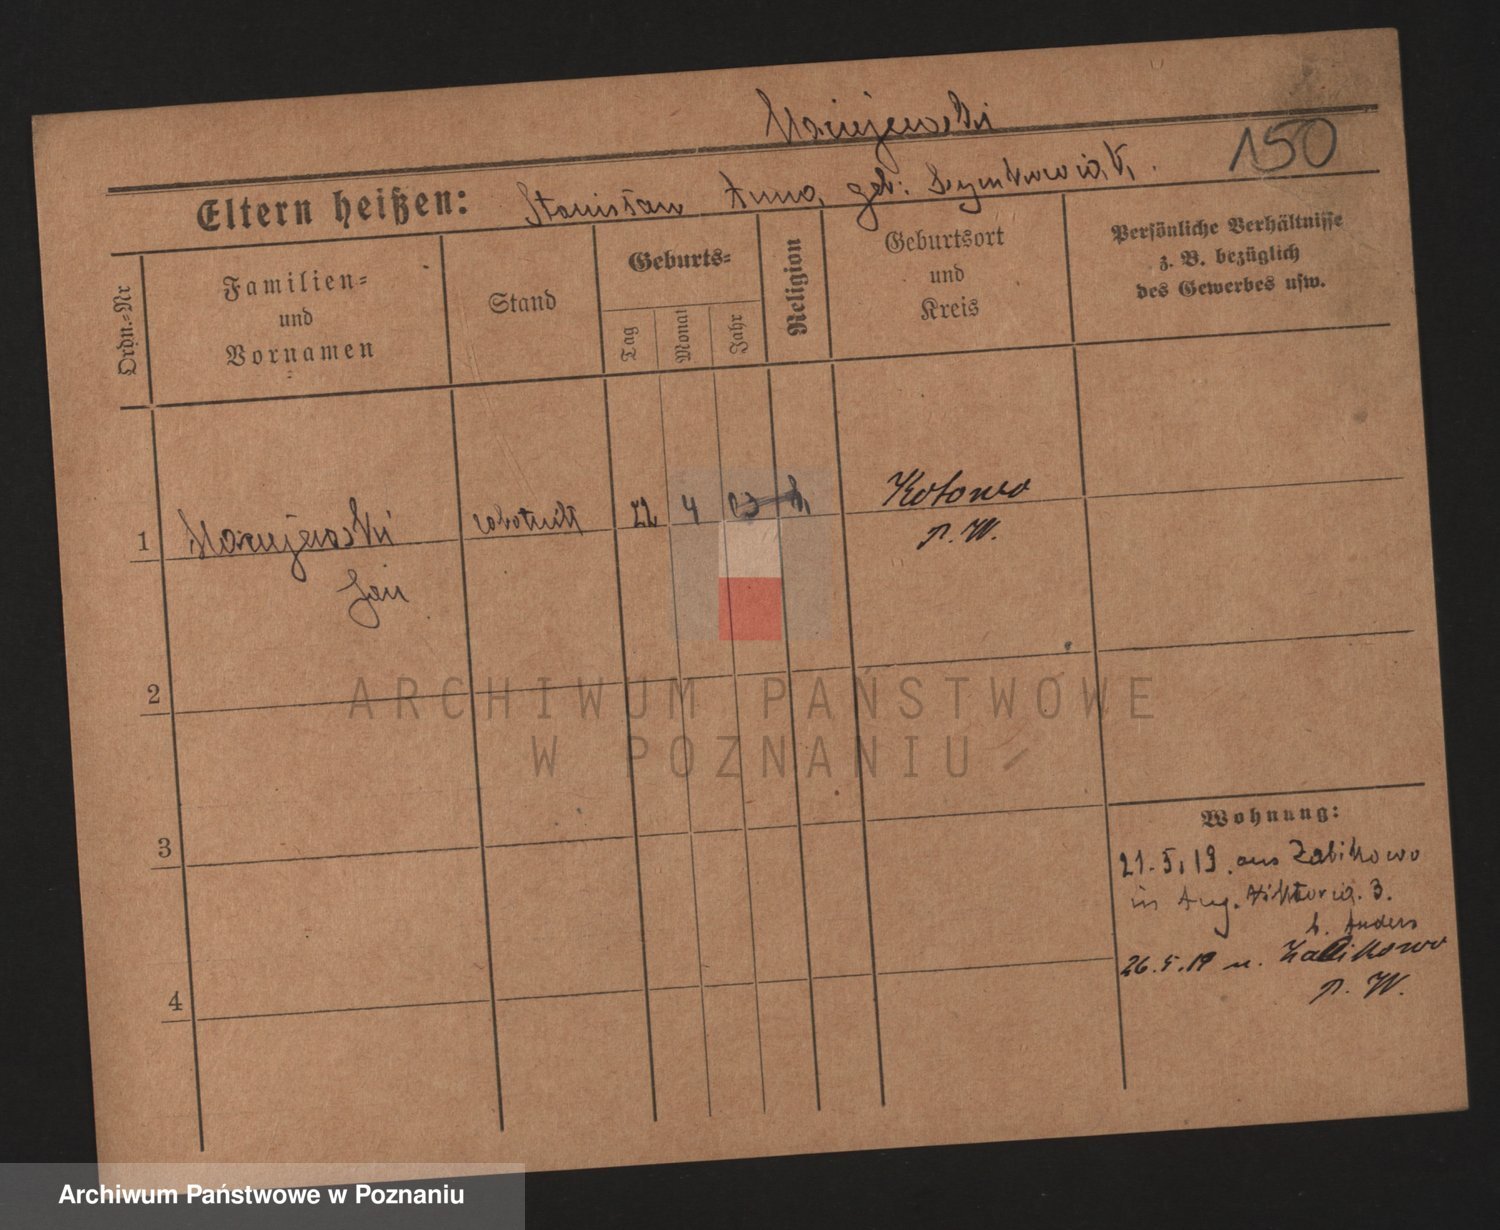 Maciejewski
150
Eltern heißen: Stanisław Anna, geb: Szymkowiak.
Ordn.-Nr
Familien-
und
Vornamen
Stand
Geburts-
Tag
Monat
Jahr
Religion
Geburtsort
und
Kreis
Persönliche Verhältnisse
z. B. bezüglich
des Gewerbes usw.
1 Maciejewski robotnik 22 4 03 k. Kotowo
p. W.
Jan
2
3
4
Wohnung:
21.5.19. aus Zabikowo
in Aug. Viktoria. 3.
b. Anders
26.5.19 n. Zabikowo
p. W.
ARCHIWUM PAŃSTWOWE
W POZNANIU
Archiwum Państwowe w Poznaniu